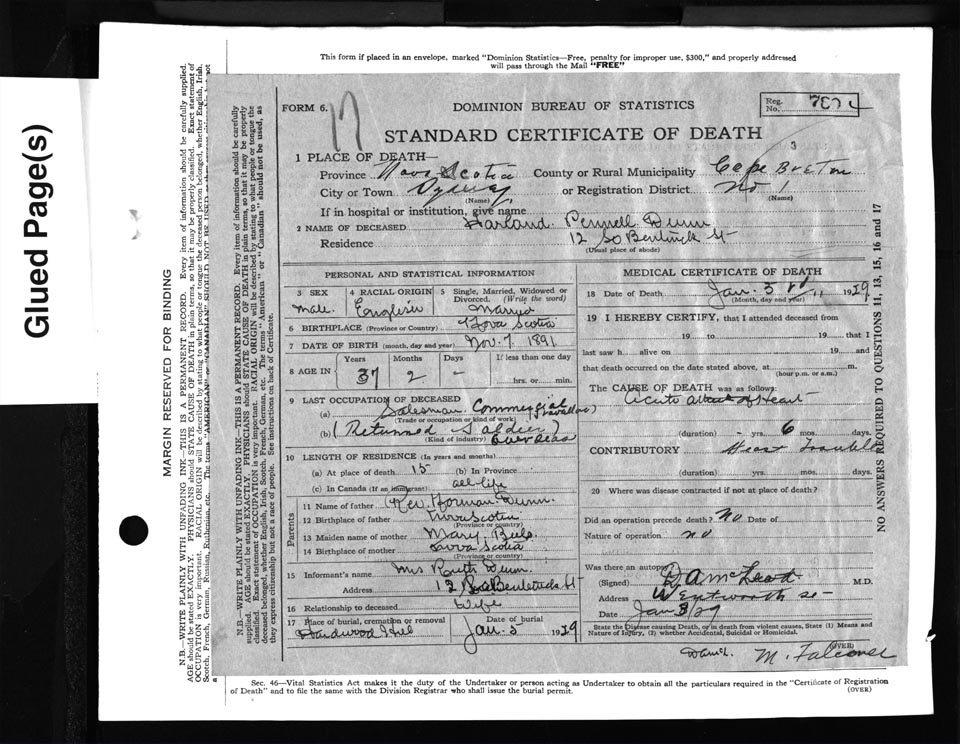 Glued Page(s)
This form if placed in an envelope, marked "Dominion Statistics—Free, penalty for improper use, $300," and properly addressed
will pass through the Mail "FREE"
MARGIN RESERVED FOR BINDING
N.B.—WRITE PLAINLY WITH UNFADING INK—THIS IS A PERMANENT RECORD. Every item of information should be carefully supplied.
AGE should be stated EXACTLY. PHYSICIANS should STATE CAUSE OF DEATH in plain terms, so that it may be properly classified. Exact statement of
OCCUPATION is very important. RACIAL ORIGIN will be described by stating to what people or tongue the deceased person belonged, whether English, Irish,
Scotch, French, German, Russian, Ruthenian, etc. The terms "AMERICAN" or "CANADIAN" SHOULD NOT BE USED
N.B.—WRITE PLAINLY WITH UNFADING INK—THIS IS A PERMANENT RECORD. Every item of information should be carefully
supplied. AGE should be stated EXACTLY. PHYSICIANS should STATE CAUSE OF DEATH in plain terms, so that it may be properly
classified. Exact statement of OCCUPATION is very important. RACIAL ORIGIN will be described by stating to what people or tongue the
deceased belonged, whether English, Irish, Scotch, French, German, etc. The terms "American" or "Canadian" should not be used, as
they express citizenship but not a race of people. See instructions on back of Certificate.
FORM 6.
17
DOMINION BUREAU OF STATISTICS
Reg. No.
STANDARD CERTIFICATE OF DEATH
3
1 PLACE OF DEATH—
Province Nova Scotia County or Rural Municipality Cape Breton
City or Town Sydney or Registration District No 1
(Name) (Name)
If in hospital or institution, give name
2 NAME OF DECEASED Harland Pennell Dunn
Residence 12 So Bentinck St
(Usual place of abode)
PERSONAL AND STATISTICAL INFORMATION
3 SEX Male
4 RACIAL ORIGIN English
5 Single, Married, Widowed or Divorced. (Write the word) Married
6 BIRTHPLACE (Province or Country) Nova Scotia
7 DATE OF BIRTH (month, day and year) Nov. 7. 1891
8 AGE IN Years 37 Months 2 Days – If less than one day hrs. or min.
9 LAST OCCUPATION OF DECEASED
(a) Salesman Commercial Traveller)
(Trade or occupation or kind of work)
(b) (Returned Soldier) Overseas
(Kind of industry)
10 LENGTH OF RESIDENCE (In years and months)
(a) At place of death 15 (b) In Province
(c) In Canada (If an immigrant) all life
Parents
11 Name of father Rev. Dunn
12 Birthplace of father Nova Scotia
(Province or country)
13 Maiden name of mother Mary
14 Birthplace of mother Nova Scotia
(Province or country)
15 Informant's name Mrs Ruth Dunn
Address 12 So Bentinck St
16 Relationship to deceased Wife
17 Place of burial, cremation or removal Hardwood Hill
Date of burial Jan. 5 1929
MEDICAL CERTIFICATE OF DEATH
18 Date of Death Jan. 3 rd 1929
(Month, day and year)
19 I HEREBY CERTIFY, that I attended deceased from
19 to 19 that I
last saw h alive on 19 and
that death occurred on the date stated above, at m.
(hour p.m. or a.m.)
The CAUSE OF DEATH was as follows:
Acute attack of Heart
(duration) – yrs. 6 mos. days.
CONTRIBUTORY Heart Trouble
(duration) yrs. mos. days.
20 Where was disease contracted if not at place of death?
Did an operation precede death? No Date of
Nature of operation no
Was there an autopsy?
(Signed) D A McLeod M.D.
Address Wentworth St
Date Jan 3/29
State the Disease causing Death, or in death from violent causes, State (1) Means and
Nature of Injury, (2) whether Accidental, Suicidal or Homicidal.
(OVER)
M. Falconer
NO ANSWERS REQUIRED TO QUESTIONS 11, 13, 15, 16 and 17
Sec. 46—Vital Statistics Act makes it the duty of the Undertaker or person acting as Undertaker to obtain all the particulars required in the "Certificate of Registration
of Death" and to file the same with the Division Registrar who shall issue the burial permit.
(OVER)